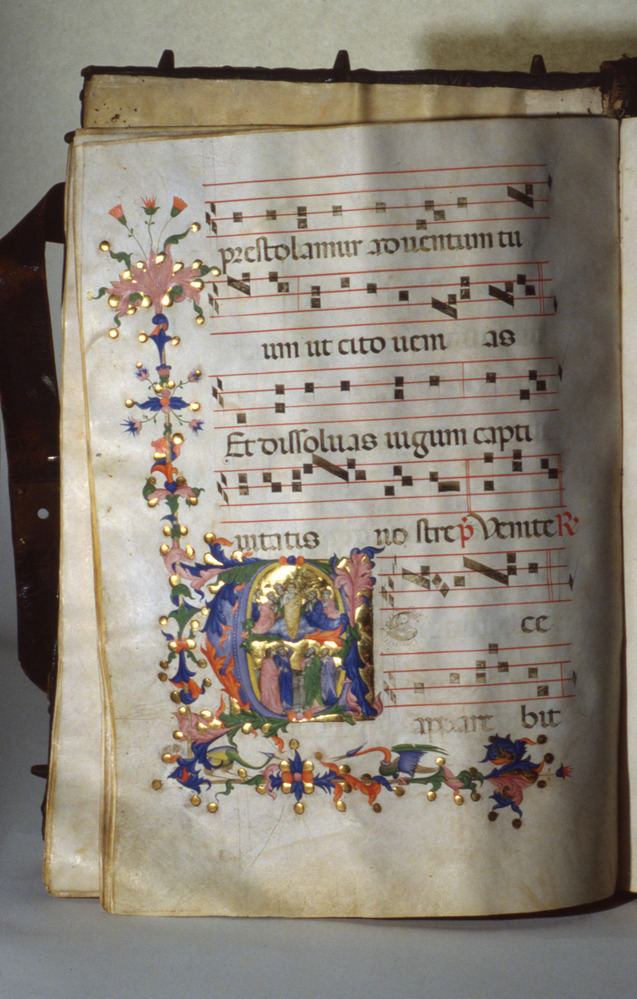 prestolamur aduentum tu
um ut cito ueni as
Et dissoluas iugum capti
uitatis no stre p̄ Venite R
E ce
appare bit